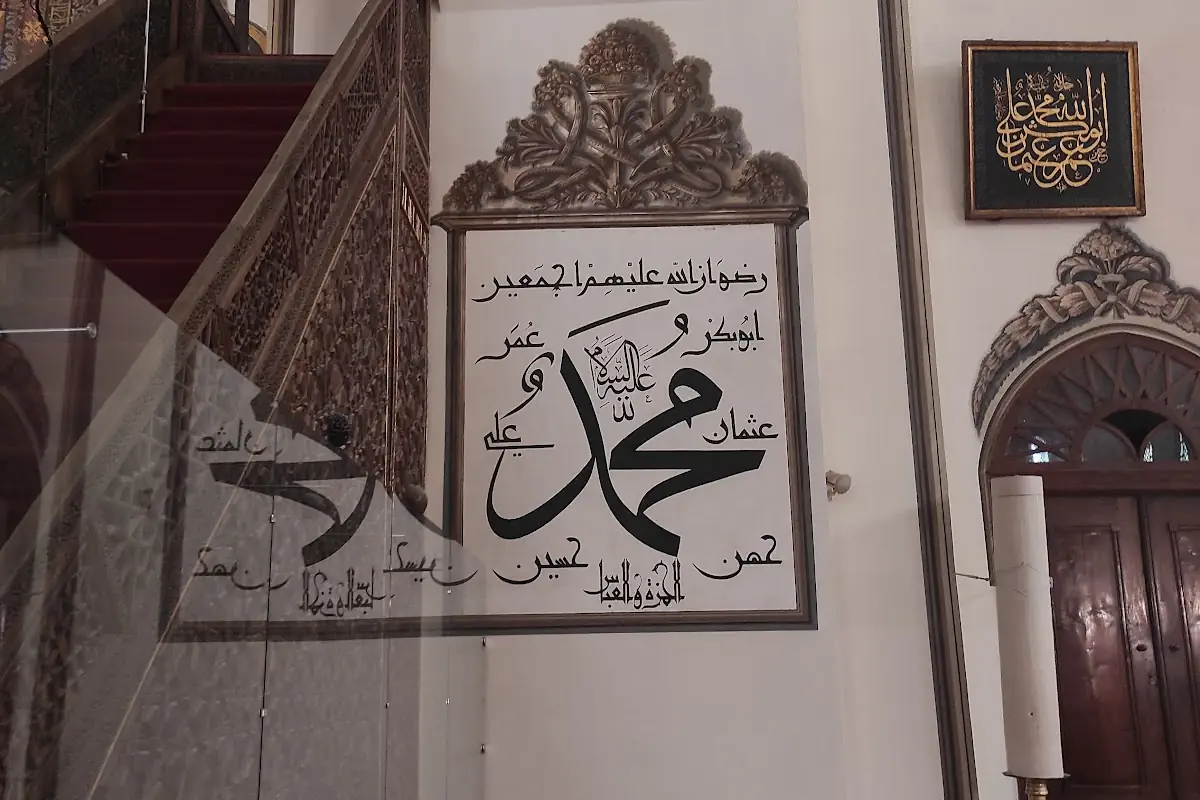 رضوان الله عليهم اجمعين
ابوبكر
عمر
محمد
عليه السلام
عثمان
علي
حسن
حسين
الحمزة و العباس
الله محمد
ابوبكر عمر عثمان علي